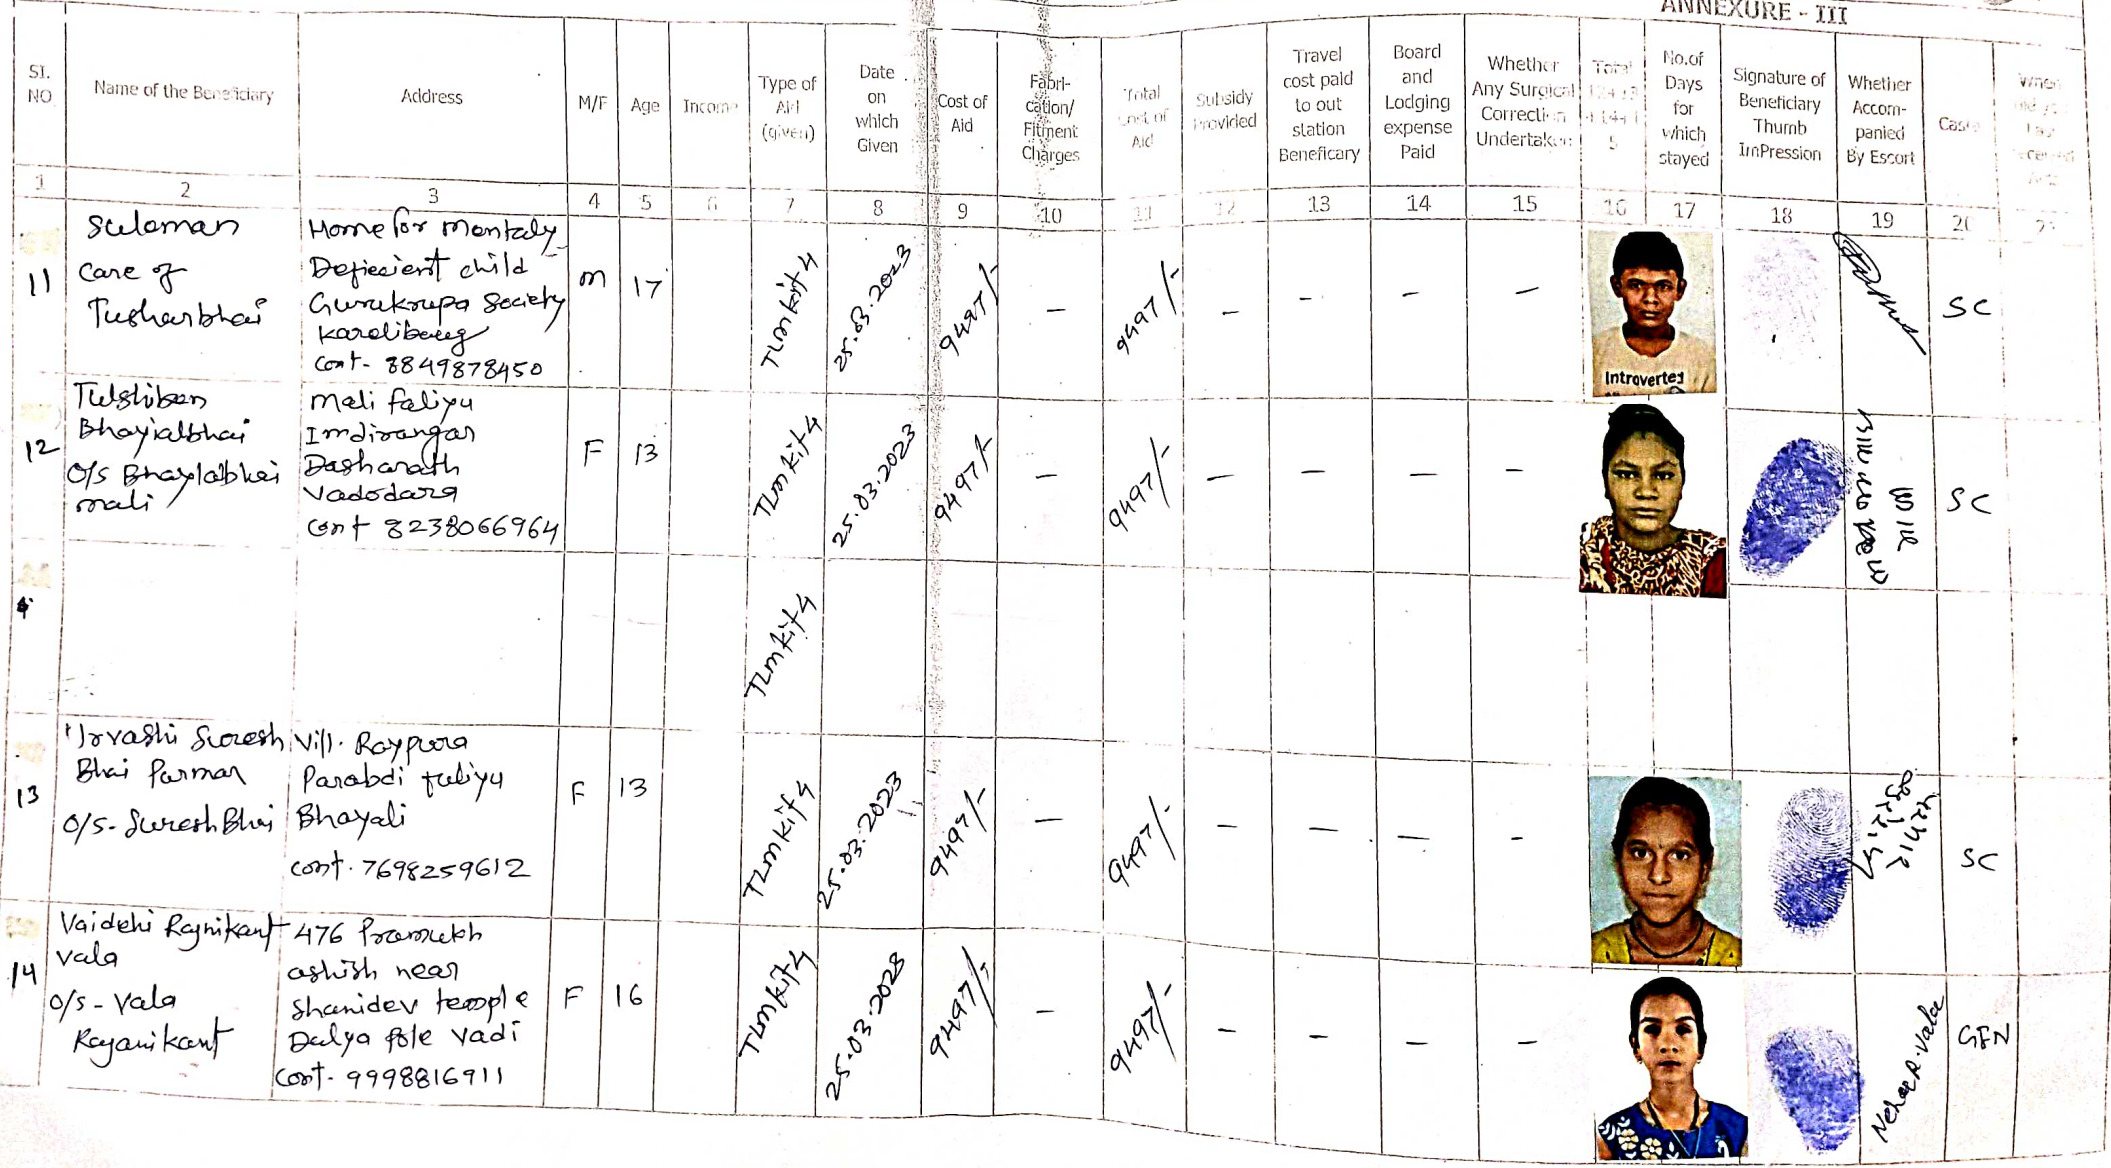 ANNEXURE - III
SI. NO
Name of the Beneficiary
Address
M/F
Age
Income
Type of Aid (given)
Date on which Given
Cost of Aid
Fabri-cation/ Fitment Charges
Total Cost of Aid
Subsidy Provided
Travel cost paid to out station Beneficary
Board and Lodging expense Paid
Whether Any Surgical Correction Undertaken
Total
No.of Days for which stayed
Signature of Beneficiary Thumb ImPression
Whether Accom-panied By Escort
Caste
1 2 3 4 5 6 7 8 9 10 11 12 13 14 15 16 17 18 19 20
11
Suleman
Care of
Tusharbhai
Home for mentaly
Deficient child
Gurukrupa Society
Karelibaug
Cont- 8849878450
M
17
TLM kit 4
25.03.2023
9497/-
-
9497/-
-
-
-
-
Introverted
SC
12
Tulshiben
Bhayialbhai
O/S Bhaylalbhai
mali
Mali faliyu
Imdirangar
Dasharath
Vadodara
Cont 8238066964
F
13
TLM kit 4
25.03.2023
9497/-
-
9497/-
-
-
-
-
SC
TLM kit 4
13
Urvashi Suresh
Bhai Parmar
O/S- SureshBhai
Vill. Raypura
Parabdi faliyu
Bhayali
Cont. 7698259612
F
13
TLM kit 4
25.03.2023
9497/-
-
9497/-
-
-
-
-
SC
14
Vaidehi Rajnikant
Vala
O/S - Vala
Rajanikant
476 Pramukh
ashish near
Shanidev temple
Dalya Pole Vadi
Cont- 9998816911
F
16
TLM kit 4
25.03.2023
9497/-
-
9497/-
-
-
-
-
Neha R. Vala
GEN